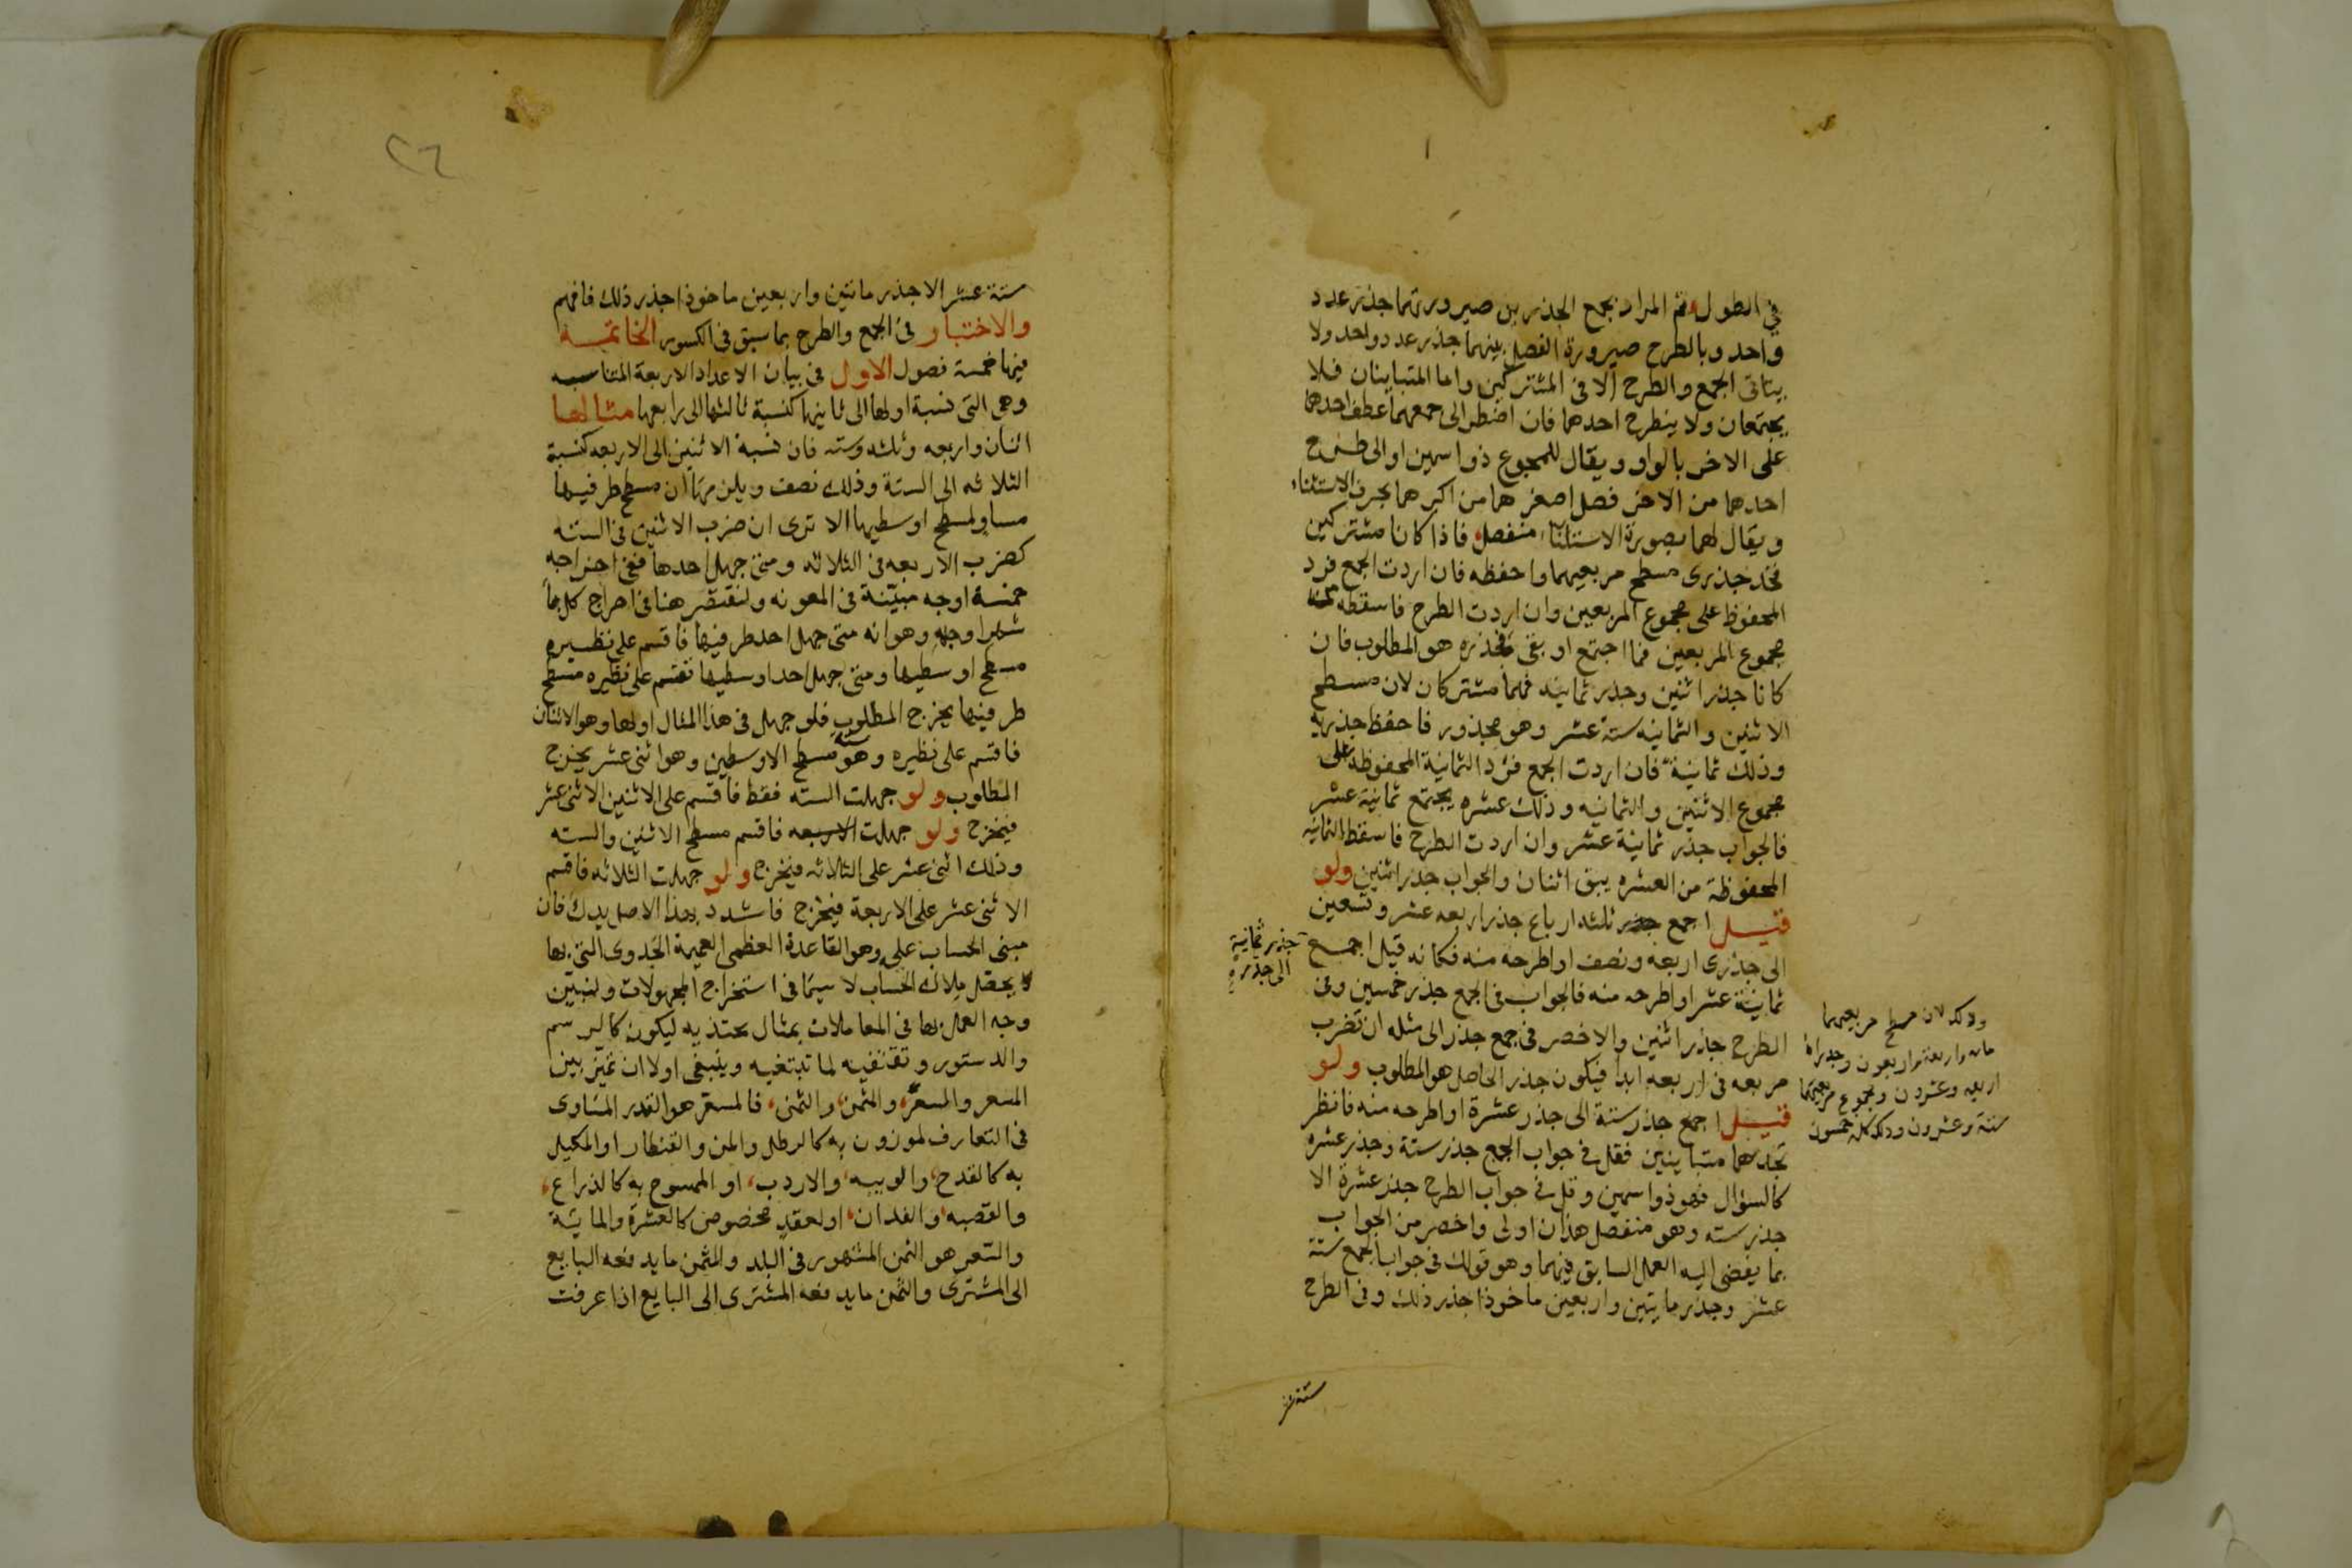 في الطول ثم المراد بجمع الجذرين صيرورتهما جذر عدد
واحد وبالطرح صيرورة الفصل بينهما جذر عدد واحد ولا
يتاتى الجمع والطرح الا في المشتركين واما المتباينان فلا
يجتمعان ولا ينطرح احدهما فان اضطر الى جمعهما عطف احدهما
على الاخر بالواو ويقال للمجموع ذو اسمين او الى طرح
احدهما من الاخر فصل اصغرهما من اكبرهما بحرف الاستثناء
ويقال لهما بصورة الاستثناء منفصل فاذا كانا مشتركين
فخذ جذرى مسطح مربعيهما واحفظه فان اردت الجمع فزد
المحفوظ على مجموع المربعين وان اردت الطرح فاسقطه من
مجموع المربعين فما اجتمع او بقى فجذره هو المطلوب فان
كانا جذر اثنين وجذر ثمانيه فهما مشتركان لان مسطح
الاثنين والثمانيه ستة عشر وهو مجذور فاحفظ جذريه
وذلك ثمانية فان اردت الجمع فزد الثمانية المحفوظة على
مجموع الاثنين والثمانيه وذلك عشره يجتمع ثمانية عشر
فالجواب جذر ثمانية عشر وان اردت الطرح فاسقط الثمانيه
المحفوظة من العشره يبق اثنان والجواب جذر اثنين ولو
قيل اجمع جذر ثلثه ارباع جذر اربعه عشر وتسعين
الى جذرى اربعه ونصف او اطرحه منه فكانه قيل اجمع
جذر ثمانية
الى جذره
ثمانية عشر او اطرحه منه فالجواب في الجمع جذر خمسين وفى
الطرح جذر اثنين والاخصر في جمع جذر الى مثله ان تضرب
مربعه في اربعه ابدا فيكون جذر الحاصل هو المطلوب ولو
قيل اجمع جذر ستة الى جذر عشرة او اطرحه منه فانظر
تجدهما متباينين فقل في جواب الجمع جذر ستة وجذر عشره
كالسؤال فهو ذو اسمين وقل في جواب الطرح جذر عشرة الا
جذر سته وهو منفصل هذان اولى واخصر من الجواب
بما يفضى اليه العمل السابق فيهما وهو قولك في جواب الجمع ستة
عشر وجذر مايتين واربعين ماخوذا جذر ذلك وفى الطرح
وذلك لان مسطح مربعيهما
مايه واربعة واربعون وجذراه
اربعه وعشرون ومجموع مربعيهما
ستة وعشرون وذلك كله خمسون
ستة عشر
٢٦
ستة عشر الا جذر مائتين واربعين ماخوذا جذر ذلك فافهم
والاختبار في الجمع والطرح بما سبق في الكسور الخاتمة
فيها خمسة فصول الاول في بيان الاعداد الاربعة المتناسبه
وهى التى نسبة اولها الى ثانيها كنسبة ثالثها الى رابعها مثالها
اثنان واربعه وثلثه وسته فان نسبة الاثنين الى الاربعه كنسبة
الثلاثه الى الستة وذلك نصف ويلزمها ان مسطح طرفيها
مساو لمسطح اوسطيها الا ترى ان ضرب الاثنين في الستة
كضرب الاربعه في الثلاثه ومتى جهل احدها ففى اخراجه
خمسة اوجه مبيّنة في المعونه ولنقتصر هنا في اخراج كل بما
شهر اوجهه وهو انه متى جهل احد طرفيها فاقسم على نظيره
مسطح اوسطيها ومتى جهل احد اوسطيها فقسم على نظيره مسطح
طرفيها يخرج المطلوب فلو جهل في هذا المثال اولها وهو الاثنان
فاقسم على نظيره وهو ستة مسطح الاوسطين وهو اثنى عشر يخرج
المطلوب ولو جهلت الستة فقط فاقسم على الاثنين الاثنى عشر
فيخرج ولو جهلت الاربعه فاقسم مسطح الاثنين والسته
وذلك اثنى عشر على الثلاثه فيخرج ولو جهلت الثلاثه فاقسم
الاثنى عشر على الاربعة فيخرج فاشدد بهذا الاصل يدك فان
مبنى الحساب عليه وهو القاعدة العظمى العميمة الجدوى التى بها
يحصّل ملاك الحساب لا سيما في استخراج المجهولات ولنبيّن
وجه العمل بها في المعاملات بمثال يحتذ به ليكون كالرسم
والدستور وتقتفيه لما تبتغيه وينبغى اولا ان تميّز بين
المسعر والسعر والمثمن والثمن فالمسعّر هو القدر المتساوى
في التعارف لموزون به كالرطل والمن والقنطار او المكيل
به كالقدح والويبه والاردب او الممسوح به كالذراع
والقصبه والفدان او لعقد مخصوص كالعشرة والماية
والسّعر هو الثمن المشهور في البلد والمثمن ما يدفعه البايع
الى المشترى والثمن ما يدفعه المشترى الى البايع اذا عرفت